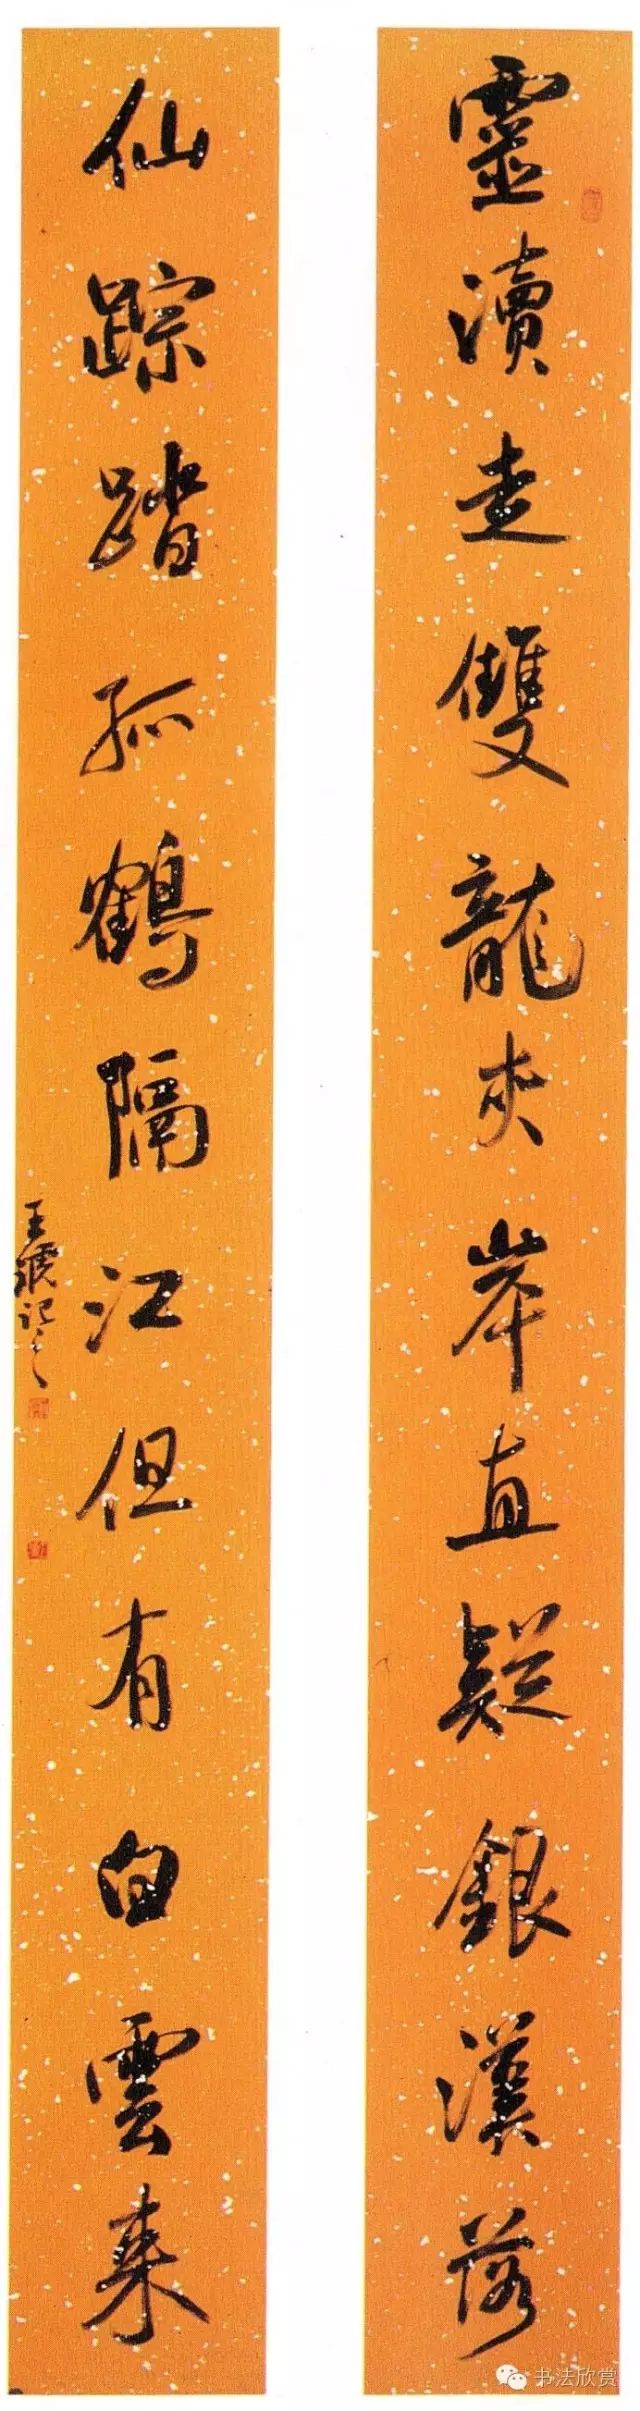 靈瀆走雙龍夾岸直疑銀漢落
仙踪踏孤鶴隔江但有白雲來
书法欣赏